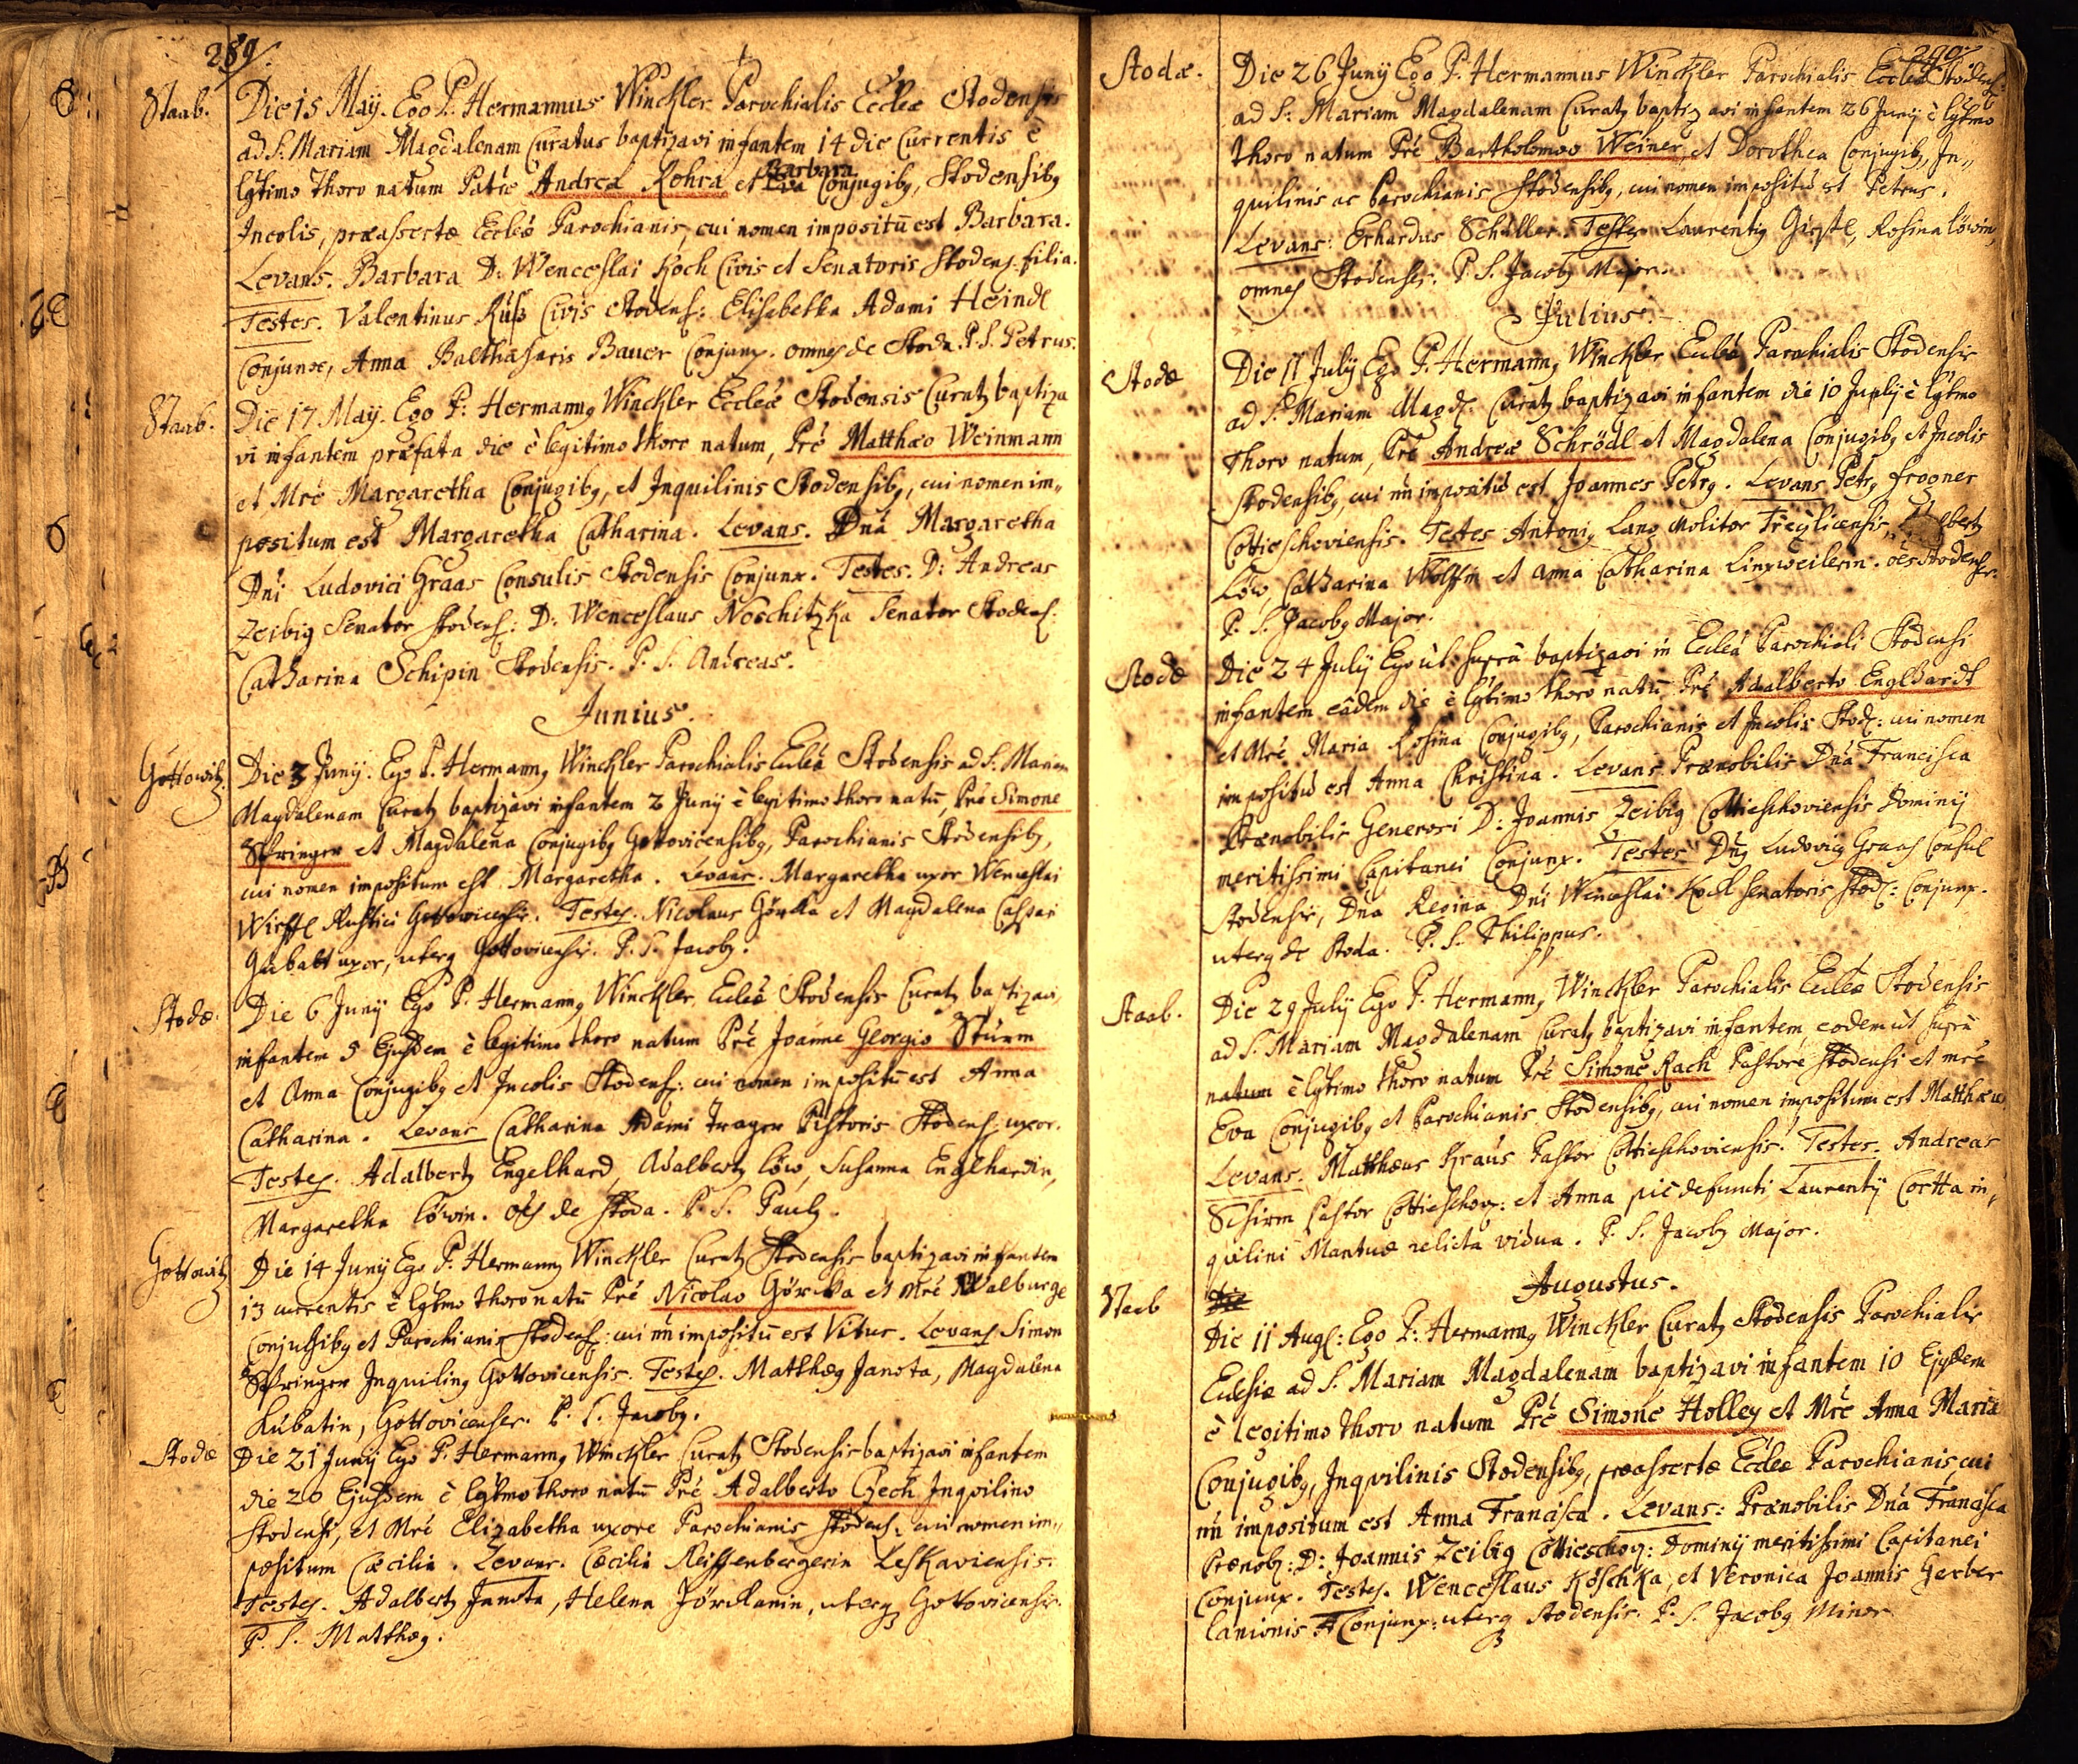 289.
Staab.
Die 15 Maÿ. Ego P. Hermannus Winckler Parochialis Eccleæ Stodensis
ad S. Mariam Magdalenam Curatus baptizavi infantem 14 die Currentis è
lgtimo thoro natum Patre Andrea Rohra et Eva Barbara Conjugibq, Stodensibq
Incolis, præassertæ Eccleæ Parochianis, cui nomen impositū est Barbara.
Levans. Barbara D: Wenceslai Koch Civis et Senatoris Stodens. filia.
Testes. Valentinus Küß Civis Stodens: Elisabetha Adami Heindl
Conjunx, Anna Balthasaris Bauer Conjunx. omnes de Stoda. P. S. Petrus.
Staab.
Die 17 Maÿ. Ego P: Hermannq Winckler Eccleæ Stodensis Curatq baptiza
vi infantem præfata die è legitimo thoro natum, Prē Matthæo Weinmann
et Mrē Margaretha Conjugibq, et Inquilinis Stodensibq, cui nomen im„
positum est Margaretha Catharina. Levans. Dnā Margaretha
Dnī Ludovici Graas Consulis Stodensis Conjunx. Testes. D: Andreas
Zeibig Senator Stodens: D: Wenceslaus Noschitzka Senator Stodens:
Catharina Schipin Stodensis. P. S. Andreas.
Junius.
Gottowitz.
Die 3 Junÿ. Ego P. Hermannq Winckler Parochialis Eccleæ Stodensis ad S. Mariam
Magdalenam Curatq baptizavi infantem 2 Junÿ è legitimo thoro natū, Prē Simone
Springer et Magdalena Conjugibq Gottovicensibq, Parochianis Stodensibq,
cui nomen impositum est Margaretha. Levans. Margaretha uxor Wenceslai
Rustici Gottovicensis. Testes. Nicolaus Görcka et Magdalena Caspari
uxor, uterq Gottovicensis. P. S. Jacobq.
Stodæ.
Die 6 Junÿ Ego P. Hermannq Winckler, Eccleæ Stodensis Curatq baptizavi
infantem 5 Ejusdem è legitimo thoro natum Prē Joanne Georgio Sturm
et Anna Conjugibq et Incolis Stodens: cui nomen impositū est Anna
Catharina. Levans Catharina Adami Trager Pistoris Stodens: uxor.
Testes. Adalbertq Engelhard, Adalbertq Löw, Susanna Englhardin,
Margaretha Löwin. oēs de Stoda. P. S. Paulq.
Gottowitz
Die 14 Junÿ Ego P. Hermannq Winckler Curatq Stodensis baptizavi infantem
13 currentis è lgtimo thoro natū Prē Nicolao Görcka et Mrē Walburga
Conjugibq et Parochianis Stodens: cui nn impositū est Vitus. Levans Simon
Springer Inquilinq Gottovicensis. Testes. Matthæq Janota, Magdalena
Kubatin, Gottovicenses. P. S. Jacobq.
Stodæ
Die 21 Junÿ Ego P. Hermannq Winckler Curatq Stodensis baptizavi infantem
die 20 Ejusdem è lgtimo thoro natū Prē Adalberto Czech Inquilino
Stodensi, et Mrē Elizabetha uxore Parochianis Stodens: cui nomen im„
positum Cæcilia. Levans. Cæcilia Reissenbergerin Leskaviensis.
Testes. Adalbertq Janota, Helena Jörckanin, uterq Gottovicensis.
P. S. Matthæq.
290.
Stodæ.
Die 26 Junÿ Ego P. Hermannus Winckler Parochialis Eccleæ Stodens:
ad S: Mariam Magdalenam Curatq baptizavi infantem 26 Junÿ è lgtmo
thoro natum Prē Bartholomæo Weiner, et Dorothea Conjugibq, In„
quilinis ac Parochianis Stodensibq, cui nomen impositū est Petrus.
Levans: Erhardus Schaller. Testes Laurentiq, Rosina Löwin,
omnes Stodenses. P. S. Jacobq Major.
Julius.
Stodæ
Die 11 Julÿ Ego P. Hermannq Winckler Eccleæ Parochialis Stodensis
ad S. Mariam Magd: Curatq baptizavi infantem die 10 Julÿ è lgtmo
thoro natum, Prē Andrea Schrödl et Magdalena Conjugibq et Incolis
Stodensibq, cui nn impositū est Joannes Petrq. Levans Petrq Frogner
Cottieschoviensis. Testes Antoniq Lang Molitor, Adalbertq
Löw, Catharina Wolffin et Anna Catharina Linxweilerin. oēs Stodenses.
P. S. Jacobq Major.
Stodæ
Die 24 Julÿ Ego ut supra baptizavi in Eccleā Parochiali Stodensi
infantem eâdem die è lgtimo thoro natū Prē Adalberto Englhardt
et Mrē Maria Rosina Conjugibq, Parochianis et Incolis Stod: cui nomen
impositū est Anna Christina. Levans Prænobilis Dnā Francisca
Prænobilis Generosi D: Joannis Zeibig Cottieschoviensis Dominÿ
meritissimi Capitanei Conjunx. Testes Dnq Ludoviq Graas Consul
Stodensis, Dnā Regina Dnī Wenceslai Koch Senatoris Stod: Conjunx.
uterq de Stoda. P. S. Philippus.
Staab.
Die 29 Julÿ Ego P. Hermannq Winckler Parochialis Eccleæ Stodensis
ad S. Mariam Magdalenam Curatq baptizavi infantem eodem ut supra
natum è lgtimo thoro natum Prē Simone Rach Pastore Stodensi et mrē
Eva Conjugibq et Parochianis Stodensibq, cui nomen impositum est Matthæus.
Levans. Matthæus Kraus Pastor Cottieschoviensis. Testes. Andreas
Schirm Pastor Cottieschov: et Anna piè defuncti Laurentÿ Cortta in„
quilini Mantuæ relicta vidua. P. S. Jacobq Major.
Augustus.
Staab
Die
Die 11 Augs: Ego P: Hermannq Winckler Curatq Stodensis Parochialis
Eclesiæ ad S. Mariam Magdalenam baptizavi infantem 10 Ejusdem
è legitimo thoro natum Prē Simone Holley et Mrē Anna Maria
Conjugibq, Inquilinis Stodensibq, præassertæ Eccleæ Parochianis, cui
nn impositum est Anna Francisca. Levans: Prænobilis Dnā Francisca
Prænob: D: Joannis Zeibig Cottieschov: Dominÿ meritissimi Capitanei
Conjunx. Testes. Wenceslaus Köschka, et Veronica Joannis Gerber
lanionis Conjunx: uterq Stodensis. P. S. Jacobq Minor